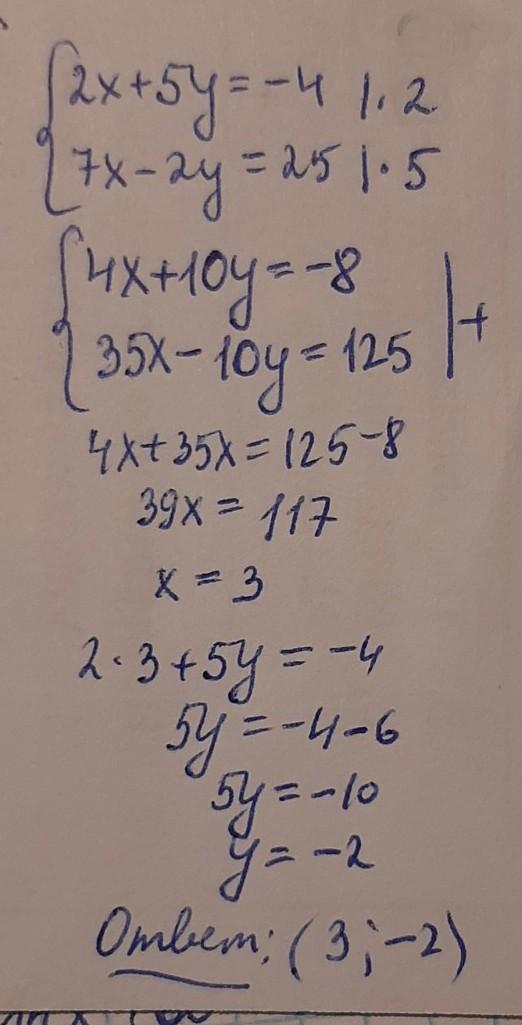 2x+5y=-4 |·2
7x-2y=25 |·5
4x+10y=-8
35x-10y=125 |+
4x+35x=125-8
39x=117
x=3
2·3+5y=-4
5y=-4-6
5y=-10
y=-2
Ответ: (3;-2)